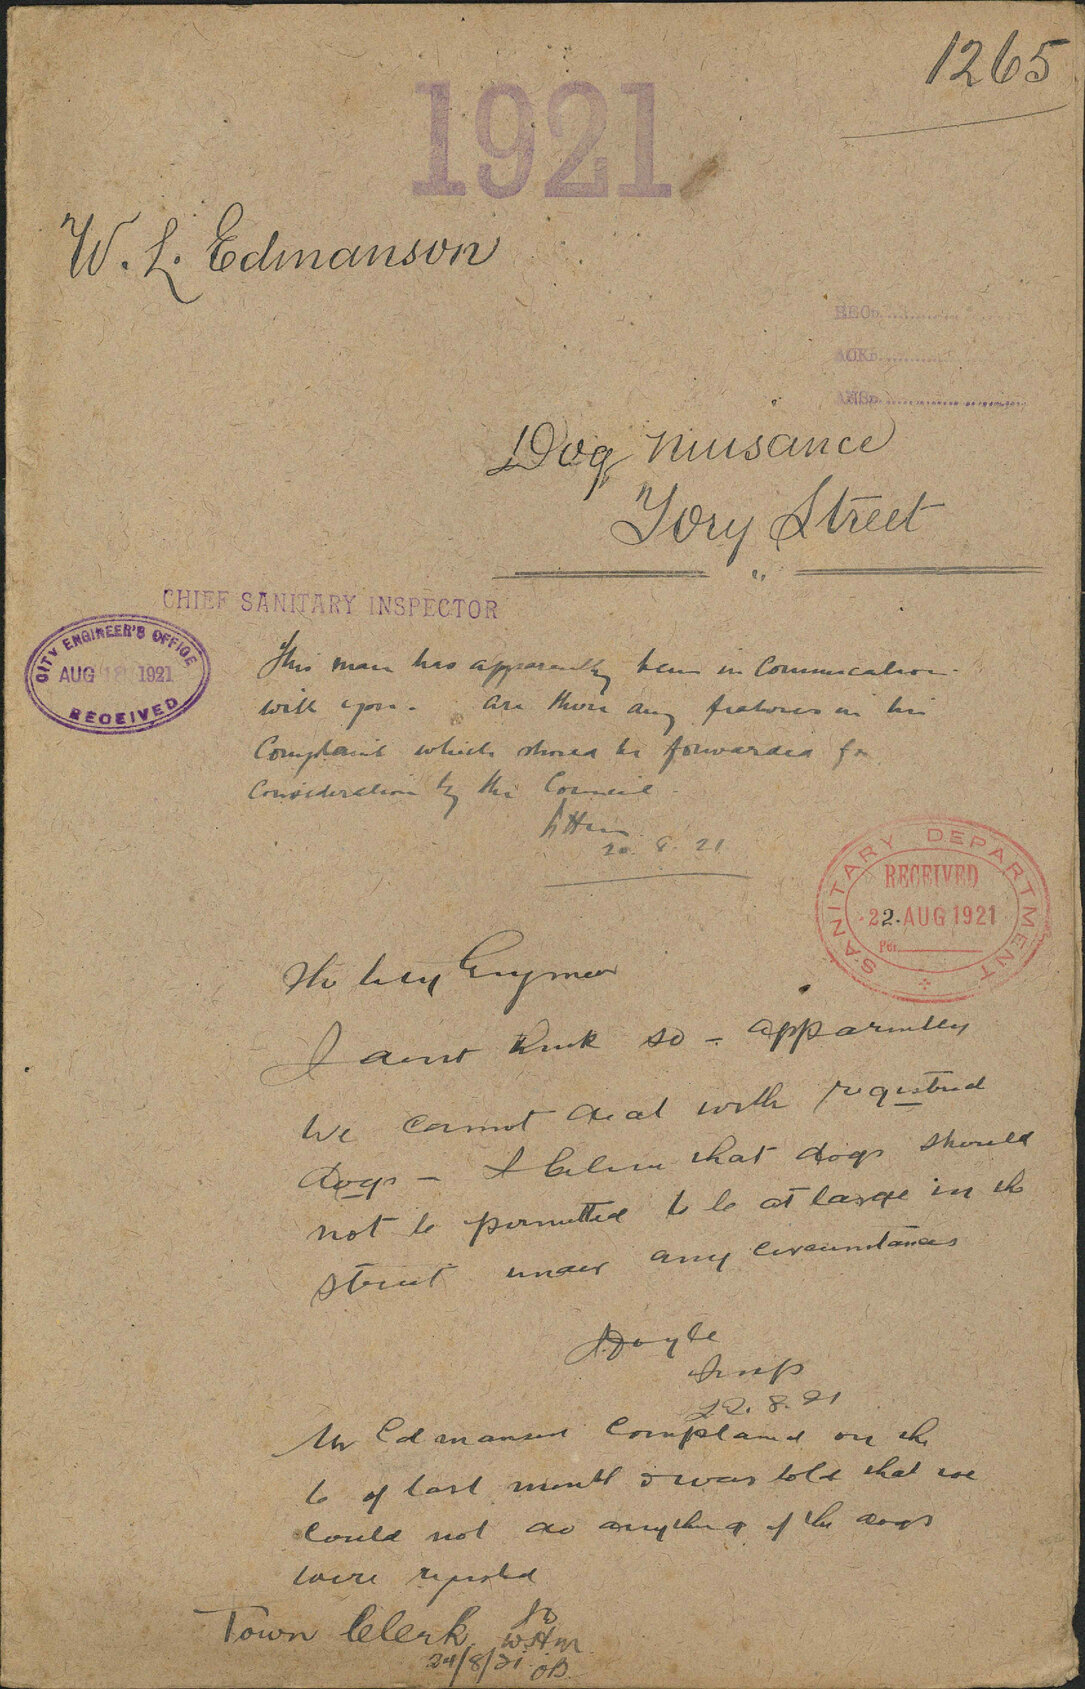 1265
1921
W. L. Edmanson
RECD.
ACKD.
ANSD.
Dog nuisance
Tory Street
"
CHIEF SANITARY INSPECTOR
CITY ENGINEER'S OFFICE
AUG 18 1921
RECEIVED
This man has apparently been in Communication
with you. Are there any features in his
Complaint which should be forwarded for
Consideration by the Council
20.8.21
SANITARY DEPARTMENT
RECEIVED
22. AUG 1921
Per
The City Engineer
I dont think so - apparently
We cannot deal with registered
dogs - I believe that dogs should
not be permitted to be at large in the
street under any circumstances
JDoyle
Insp
22.8.21
Mr Edmanson Complained on the
6 of last month & was told that we
Could not do anything if the dogs
were
Town Clerk
WHM
24/8/21